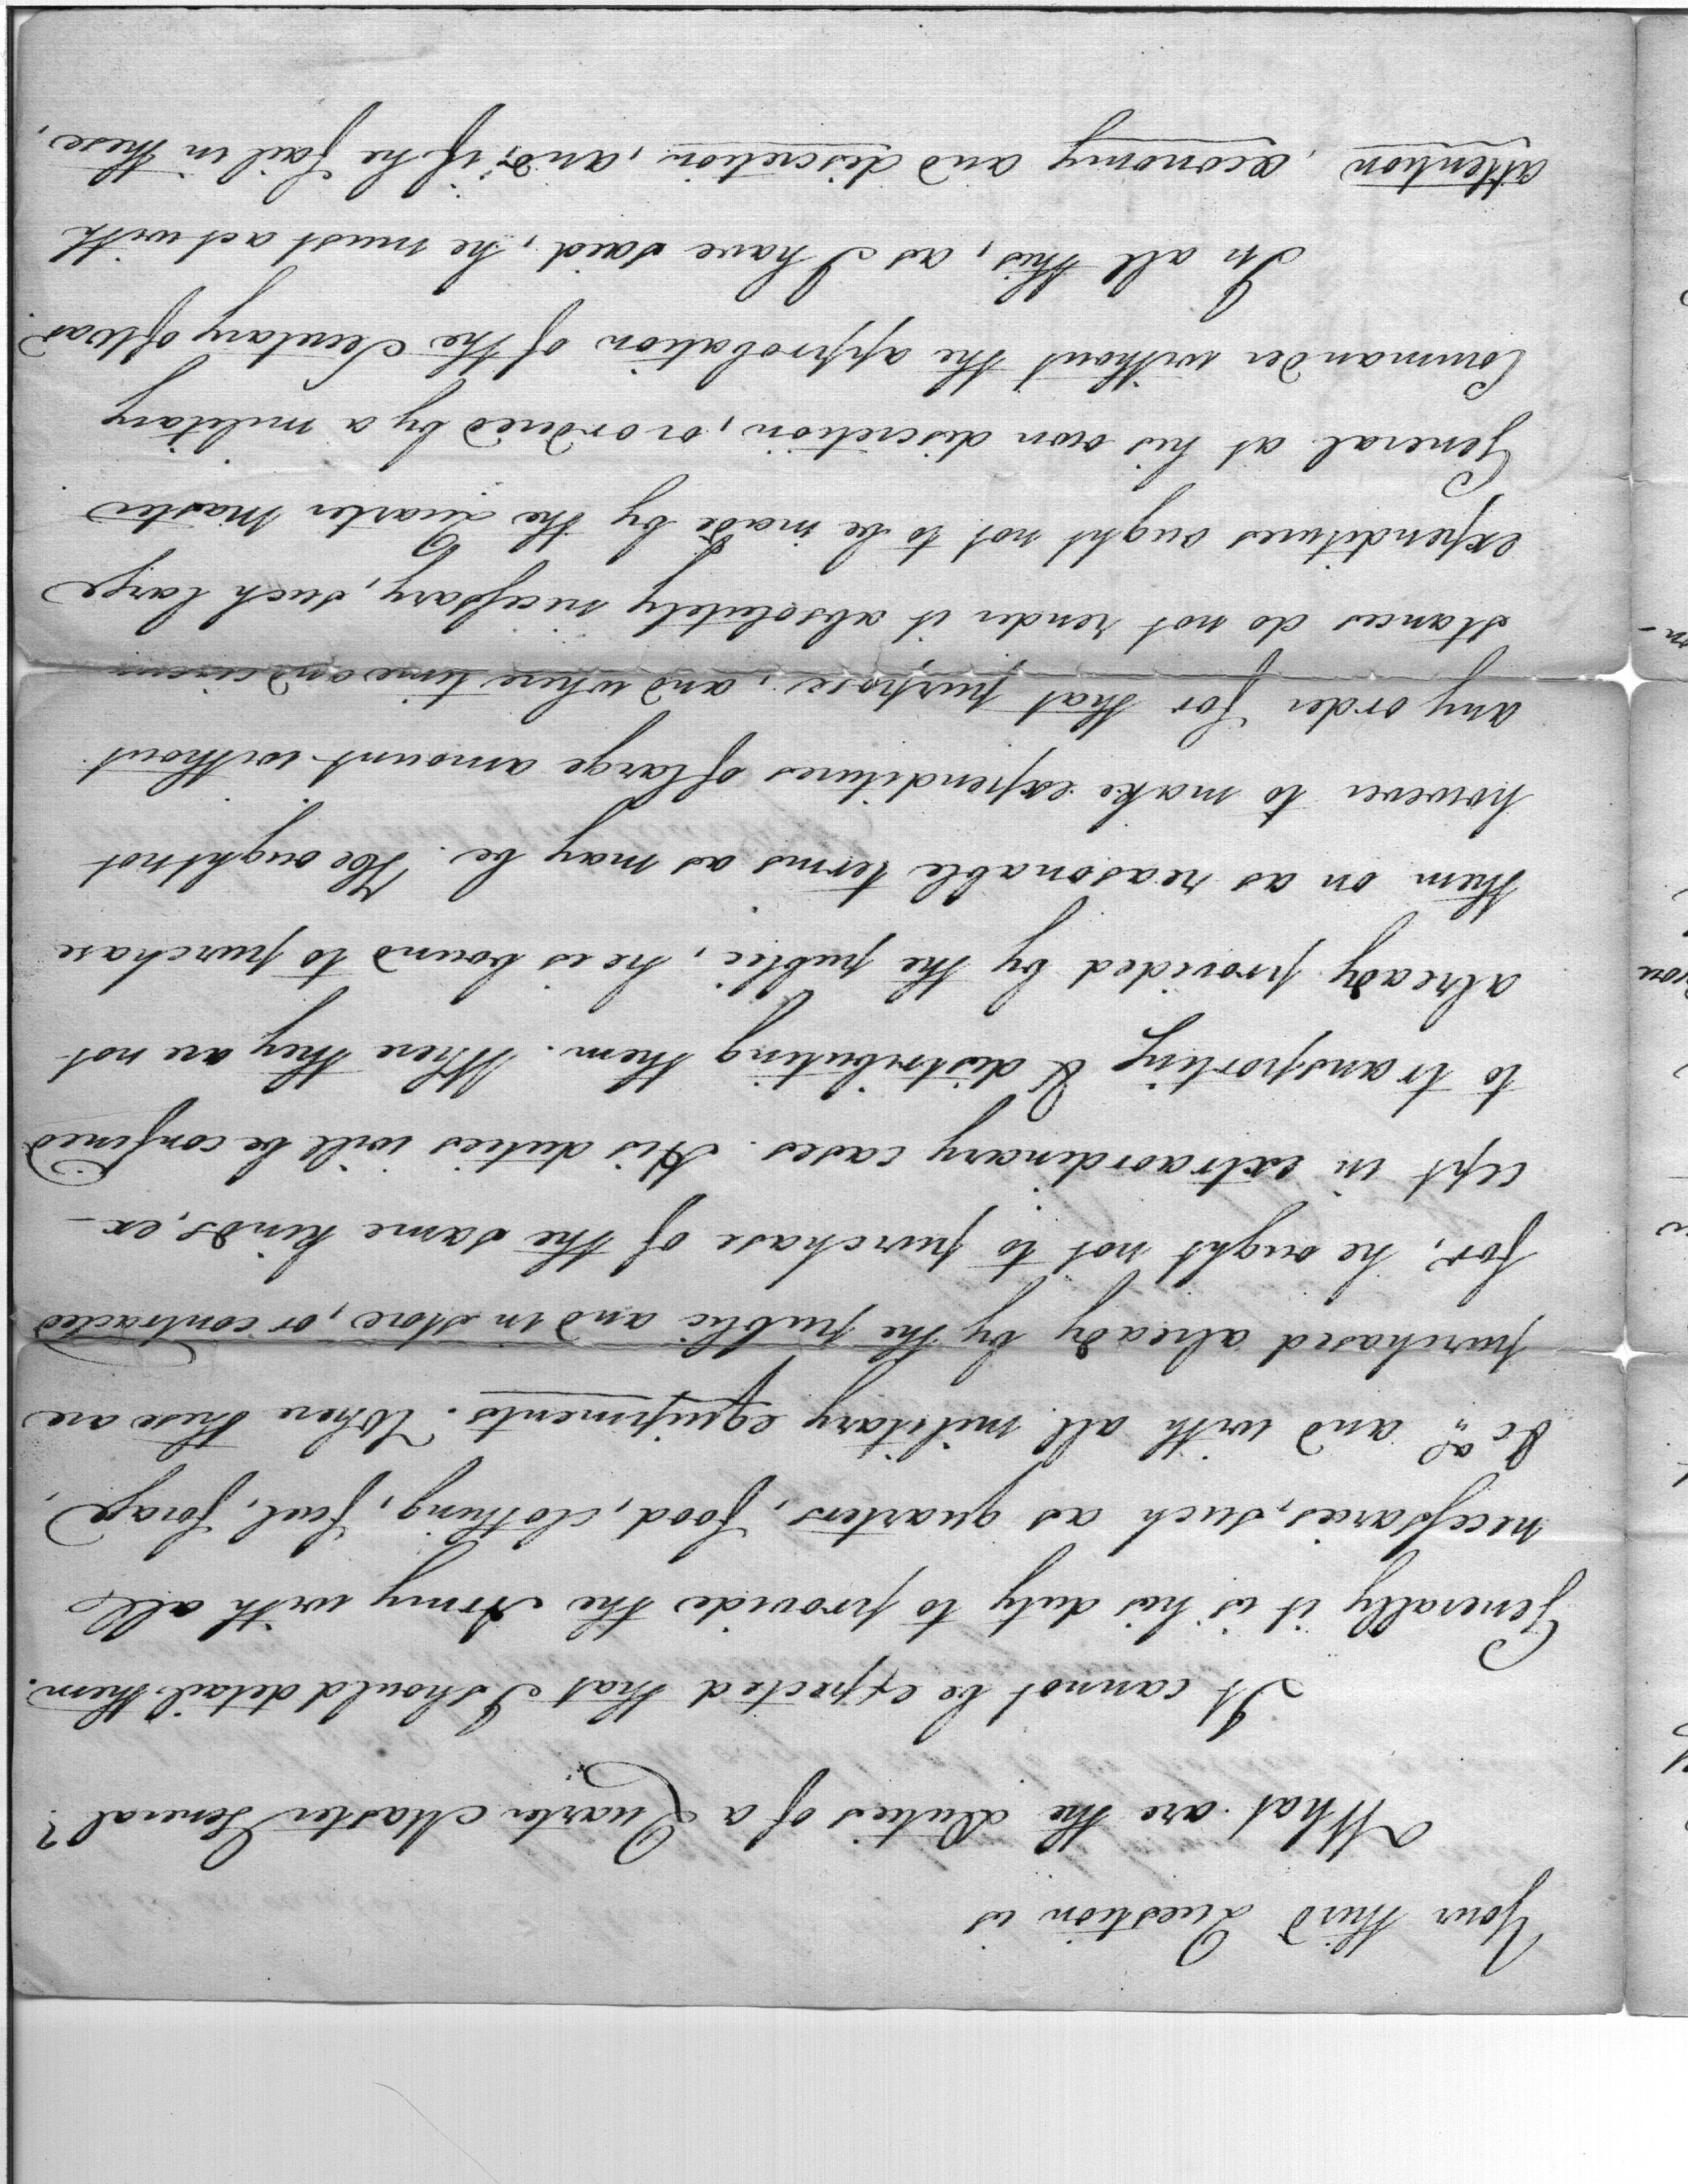 Your third Question is
What are the Duties of a Quarter Master General?
It cannot be expected that I should detail them.
Generally it is his duty to provide the Army with all
necessaries, such as quarters, food, clothing, fuel, forage,
&ca,, and with all military equipments. Where these are
purchased already by the public and in store, or contracted
for, he ought not to purchase of the same kinds, ex-
cept in extraordinary cases. His duties will be confined
to transporting & distributing them. Where they are not
already provided by the public, he is bound to purchase
them on as reasonable terms as may be. He ought not
however to make expenditures of large amount without
any order for that purpose, and where time and circum
stances do not render it absolutely necessary, such large
expenditures ought not to be made by the Quarter Master
General at his own discretion, or ordered by a military
Commander without the approbation of the Secretary of War
In all this, as I have said, he must act with
attention, œconomy and discretion, and, if he fail in these,